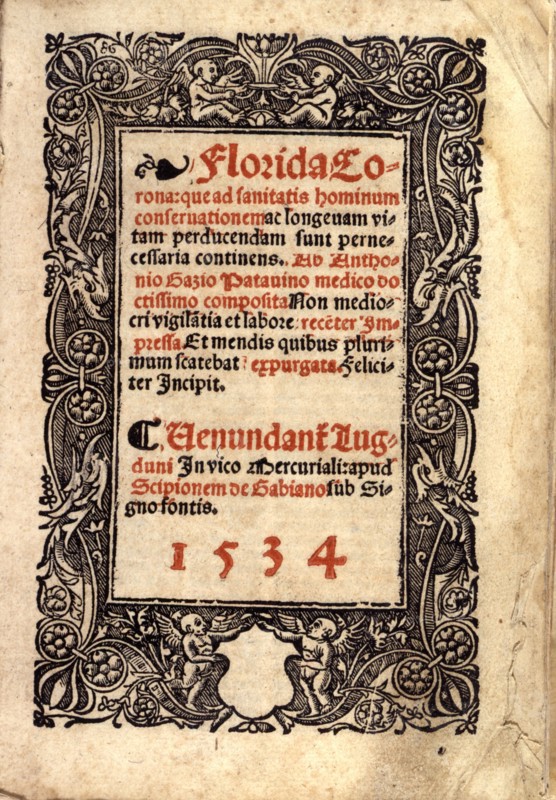 Florida Co-
rona: que ad sanitatis hominum
conseruationem ac longeuam vi-
tam perducendam sunt perne-
cessaria continens. Ab Antho-
nio Gazio Patauino medico do
ctissimo composita Non medio-
cri vigilātia et labore: recēter Im-
pressa Et mendis quibus pluri-
mum scatebat: expurgata. Felici-
ter Incipit.
¶ Uenundant̄ Lug-
duni In vico Mercuriali: apud
Scipionem de Gabiano sub Si-
gno fōntis.
1534